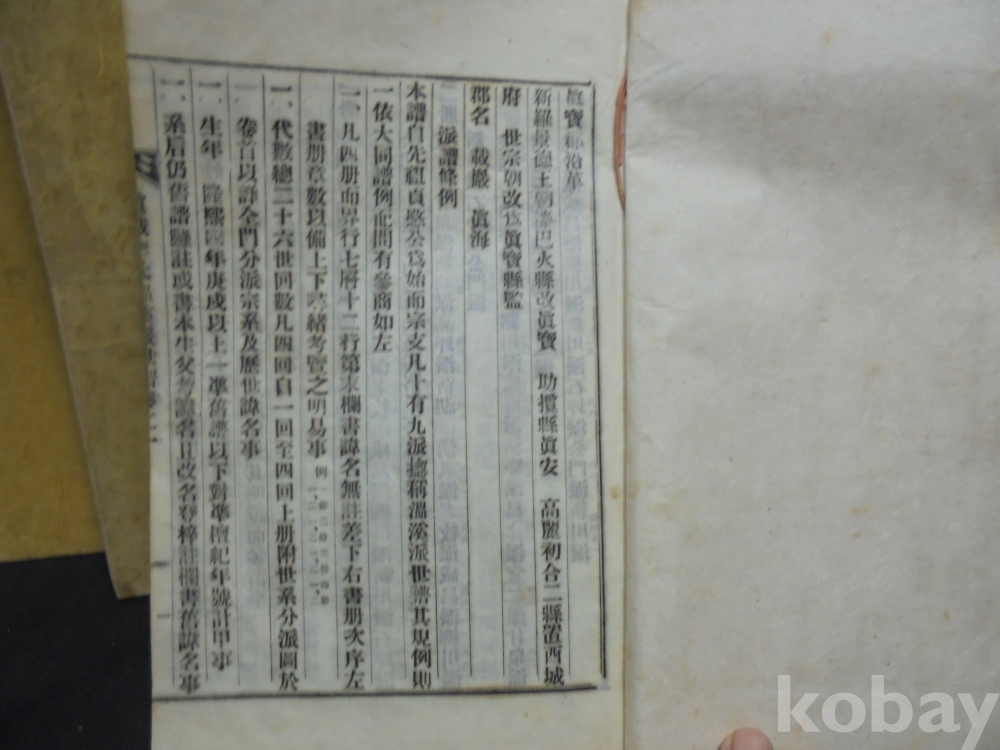 眞寶 沿革
新羅景德王朝 巴火縣改眞寶 助攬縣眞安 高麗初合二縣置西城
府 世宗朝改爲眞寶縣監
郡名 載巖 眞海
派譜條例
本譜自先祖貞愍公爲始而宗支凡十有九派摠稱溫溪派世譜其規例則
一依大同譜例此間有參商如左
一、凡四册而界行七層十二行第末欄書諱名無註差下右書册次序左
書册章數以備上下 緖考覽之明易事 例
一、代數總二十六世回數凡四回自一回至四回上册附世系分派圖於
卷首以詳全門分派宗系及歷世諱名事
一、生年 隆熙四年庚戌以上一準舊譜以下對準檀紀年號計甲事
一、系后仍舊譜 註或書本生父考 名且改名登梓註欄書舊諱名事
kobay